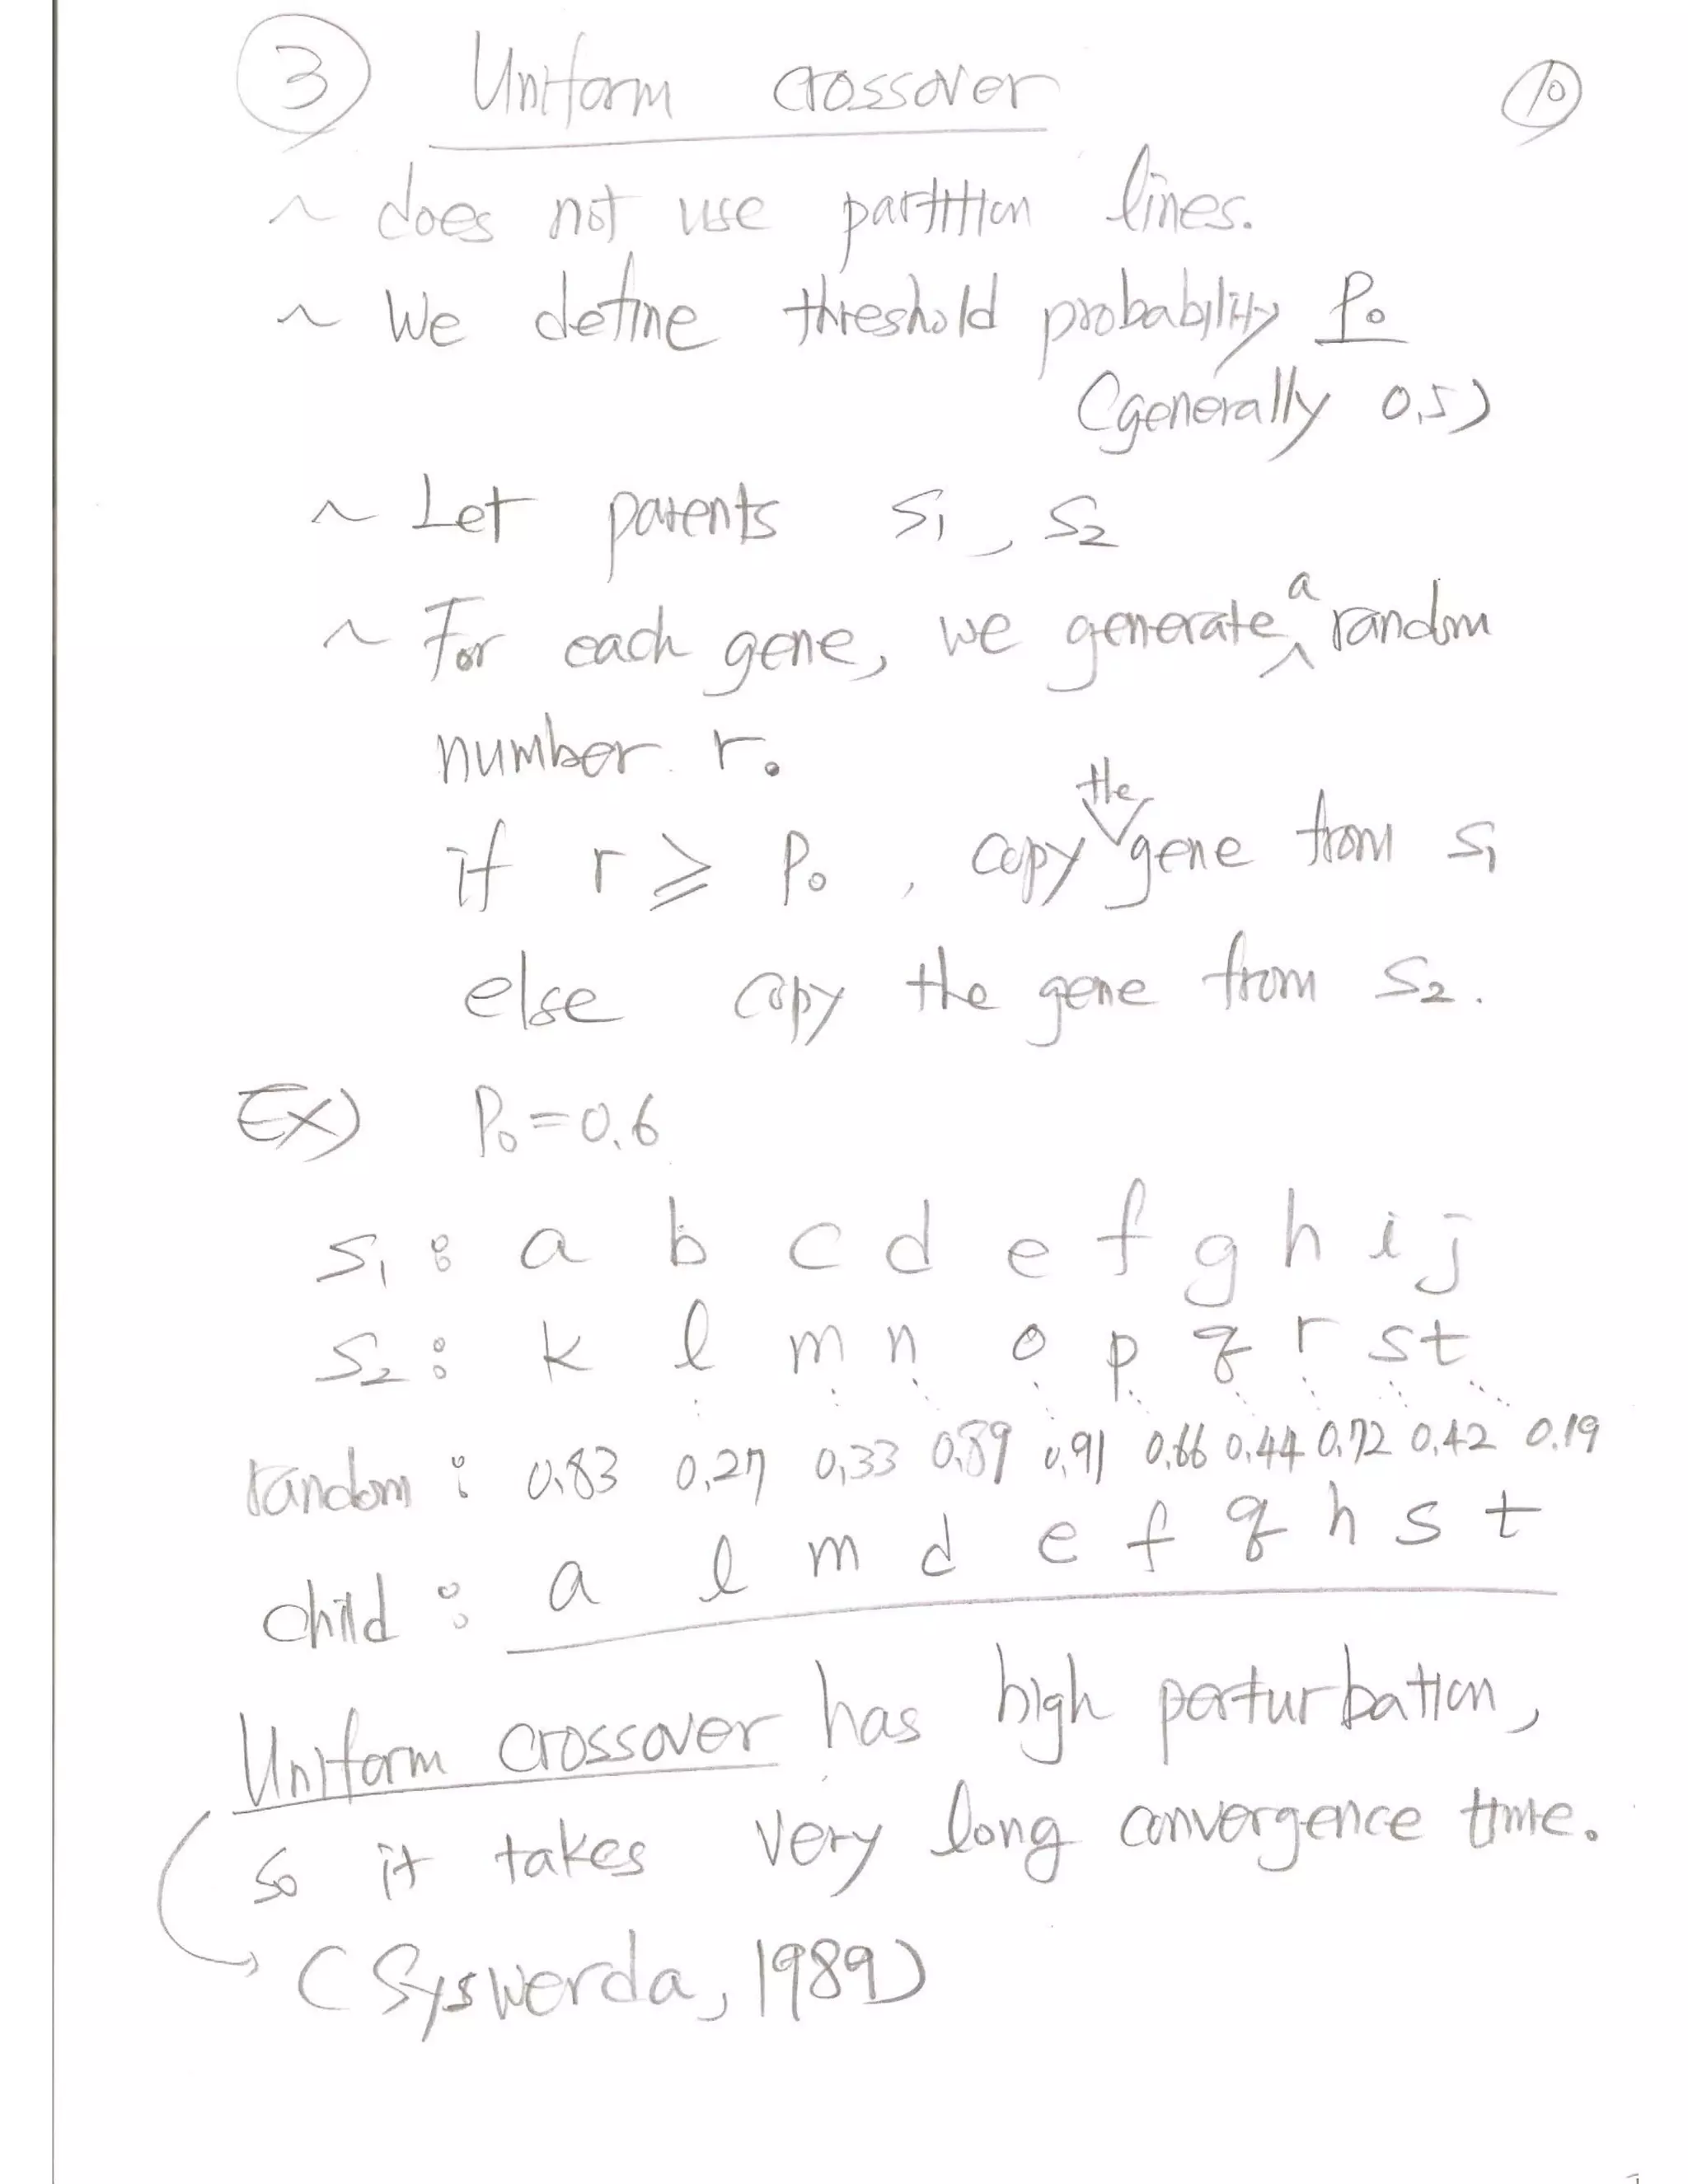 ③ Uniform crossover ⑩
~ does not use partition lines.
~ We define threshold probability P₀
(generally 0.5)
~ Let parents S₁, S₂
~ For each gene, we generate a random
number r.
if r ≥ P₀, copy the gene from S₁
else copy the gene from S₂.
Ex) P₀=0.6
S₁: a b c d e f g h i j
S₂: k l m n o p q r s t
random: 0.83 0.27 0.33 0.89 0.91 0.66 0.44 0.72 0.42 0.19
child: a l m d e f q h s t
Uniform crossover has high perturbation,
so it takes very long convergence time.
(Syswerda, 1989)